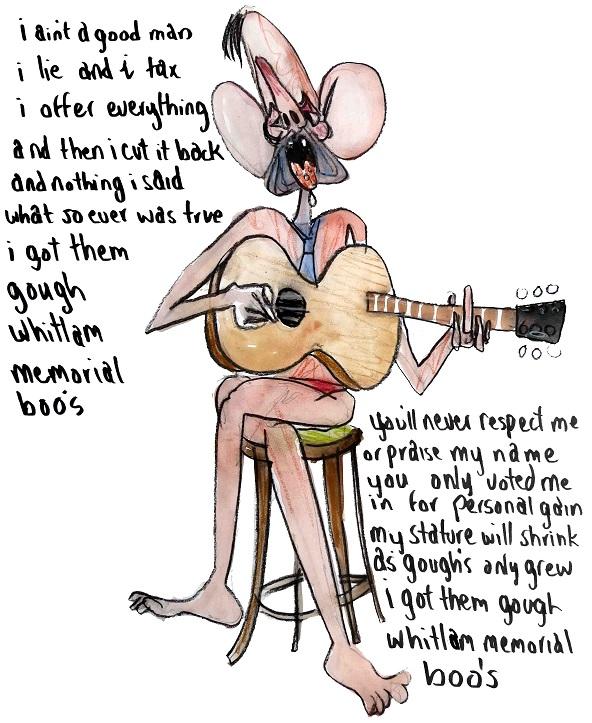 i aint a good man
i lie and i tax
i offer everything
and then i cut it back
and nothing i said
what so ever was true
i got them
gough
whitlam
memorial
boo's
you'll never respect me
or praise my name
you only voted me
in for personal gain
my stature will shrink
as gough's only grew
i got them gough
whitlam memorial
boo's